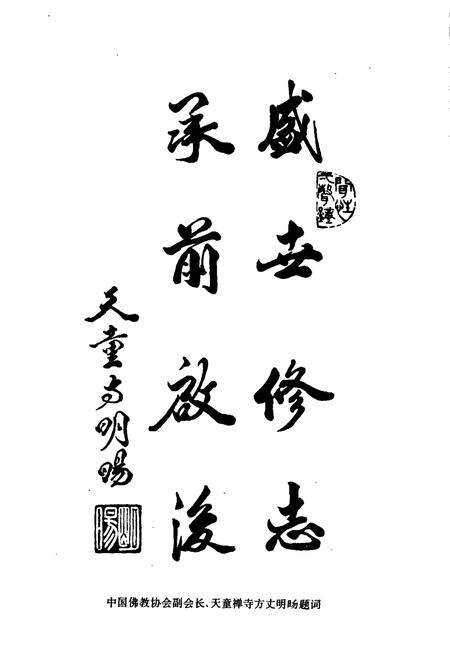 盛世修志
承前啟後
天童寺明暘
明暘
中国佛教协会副会长、天童禅寺方丈明旸题词